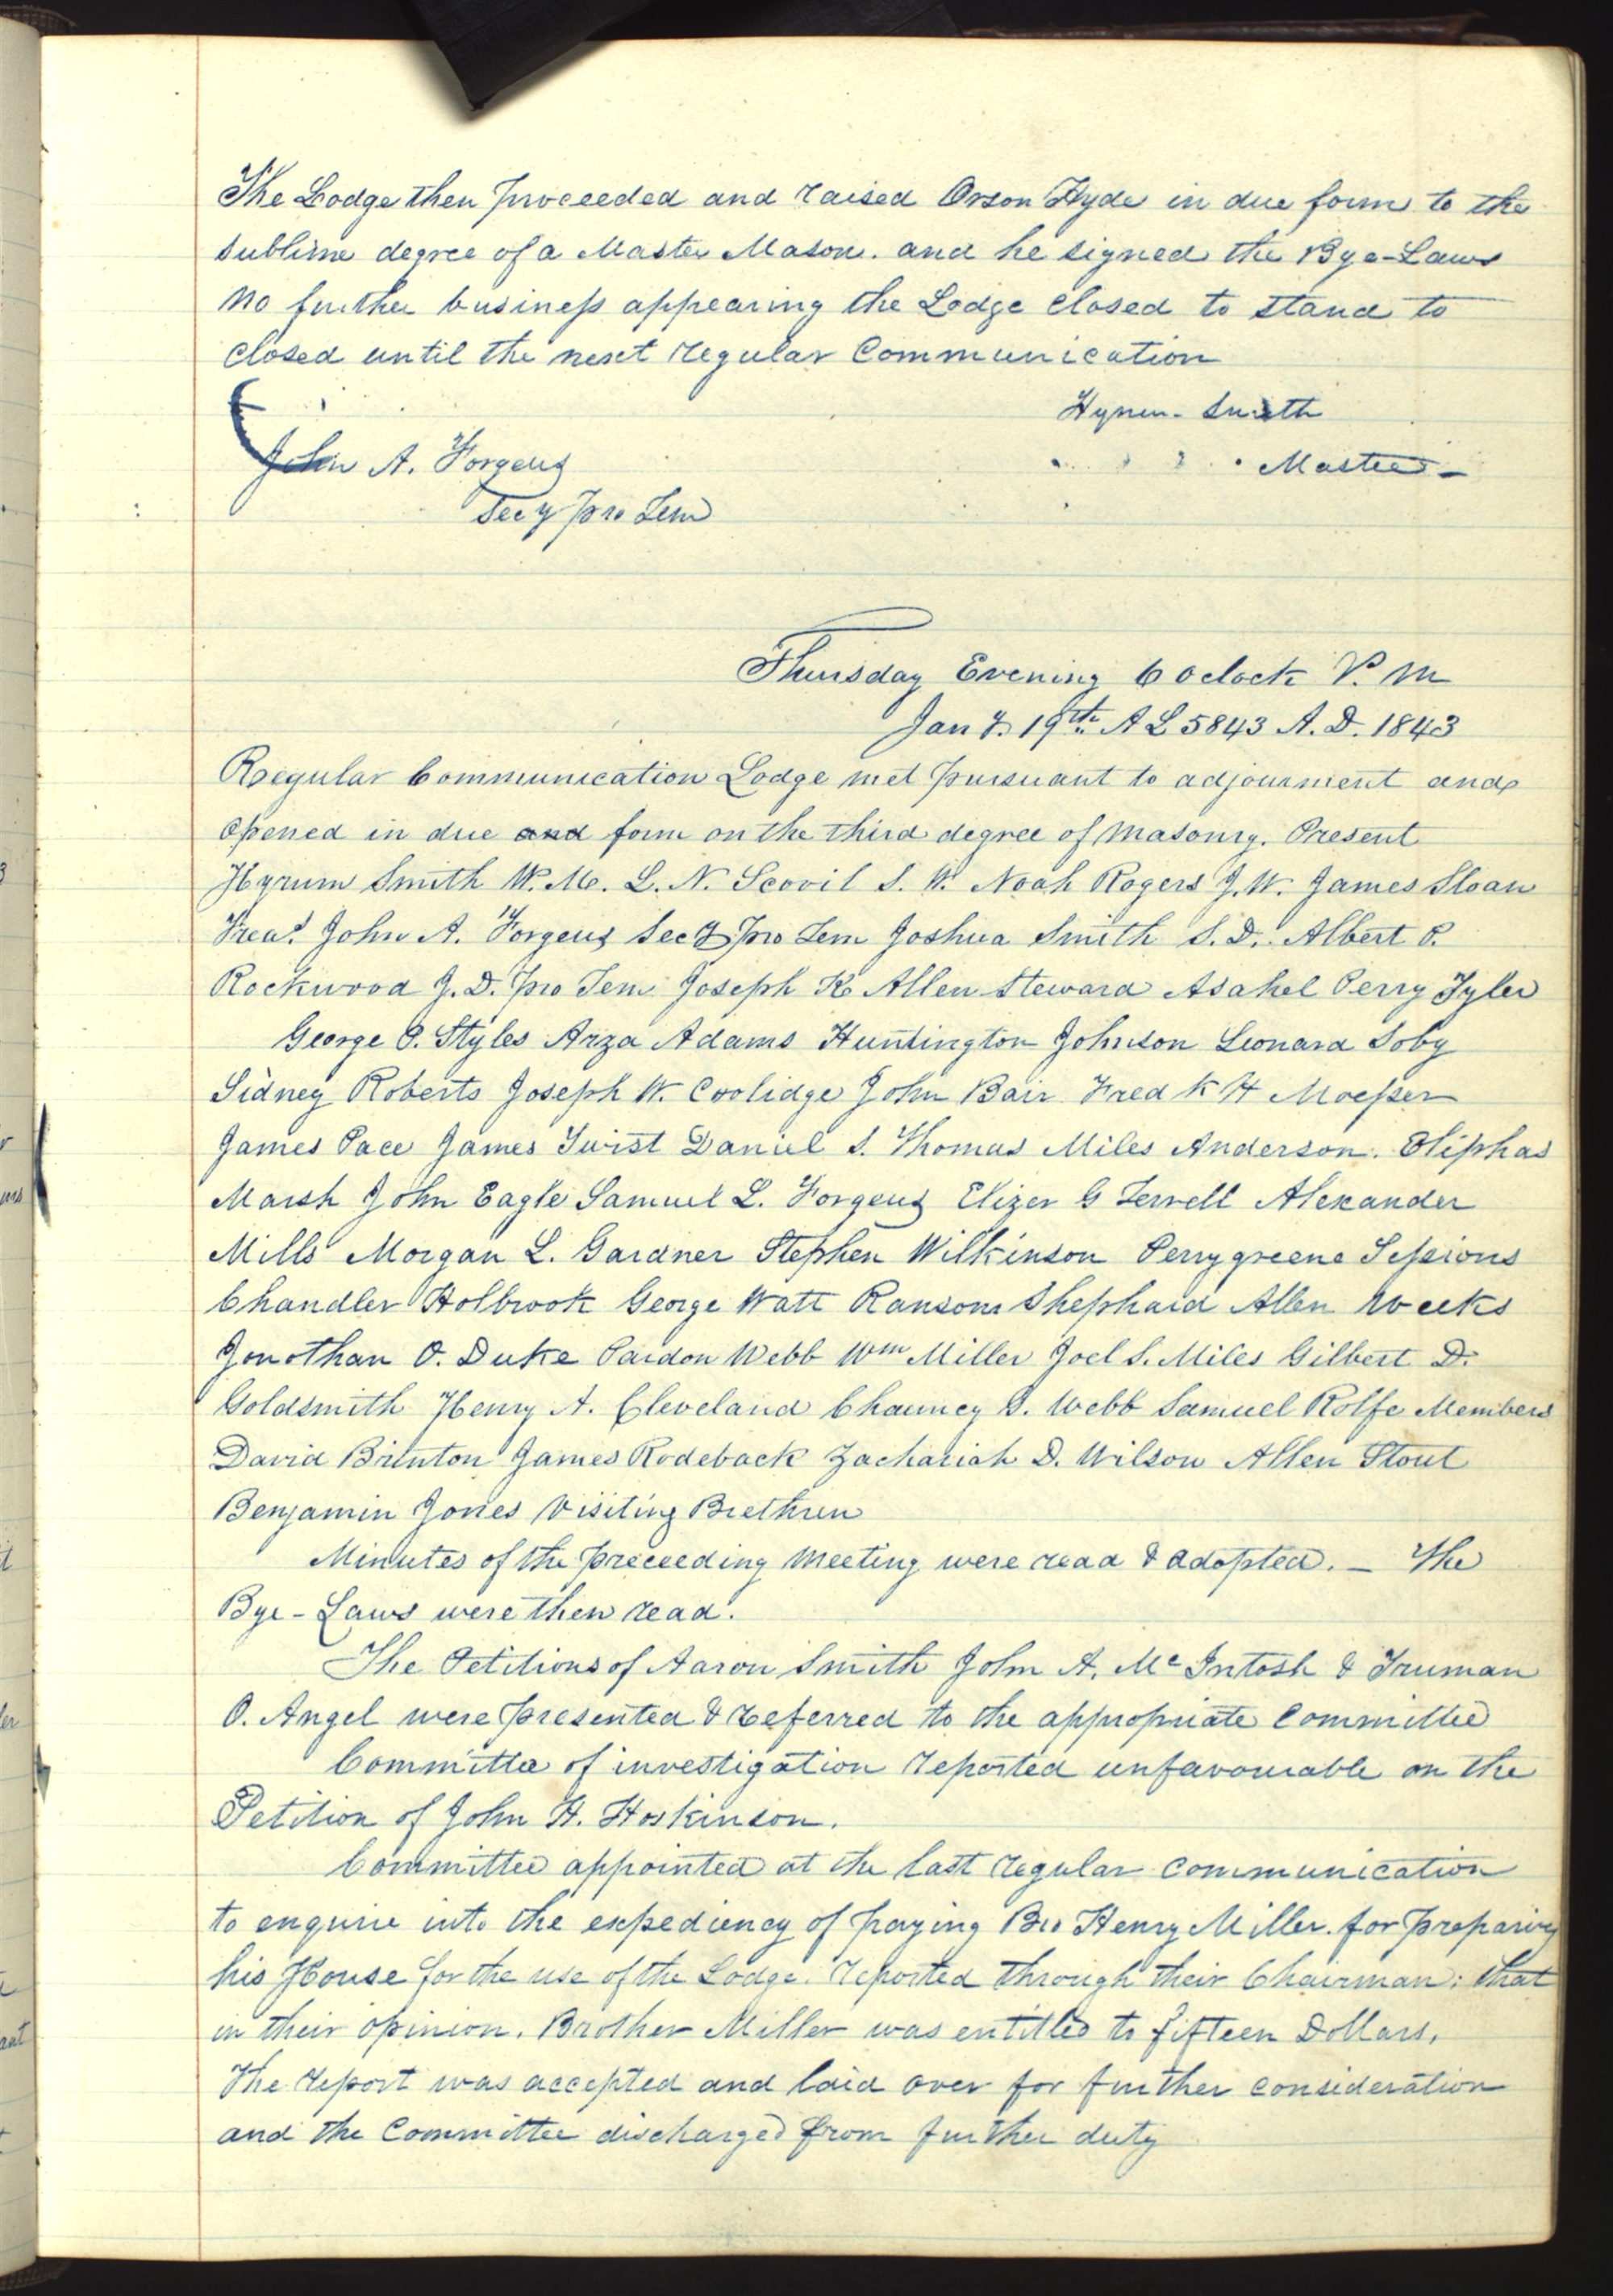 The Lodge then proceeded and raised Orson Hyde in due form to the
sublime degree of a Master Mason. and he signed the Bye-Laws
No further business appearing the Lodge closed to stand to
closed until the next regular Communication
Hyrum Smith
Master
John A. Forgeus
Secy pro Tem
Thursday Evening 6 oclock P. M
Jany. 19th A L 5843 A. D. 1843
Regular Communication Lodge met pursuant to adjournment and
opened in due and form on the third degree of Masonry. Present
Hyrum Smith W. M. L. N. Scovil S. W. Noah Rogers J. W. James Sloan
Treas. John A. Forgeus Secy pro Tem Joshua Smith S. D. Albert P.
Rockwood J. D. pro Tem Joseph K Allen Steward Asahel Perry Tyler
George P. Styles Arza Adams Huntington Johnson Leonard Soby
Sidney Roberts Joseph W. Coolidge John Bair Fred k H Moesser
James Pace James Twist Daniel S. Thomas Miles Anderson. Eliphas
Marsh John Eagle Samuel L. Forgeus Elizer G Terrell Alexander
Mills Morgan L. Gardner Stephen Wilkinson Perrygreene Sessions
Chandler Holbrook George Watt Ransom Shephard Allen Weeks
Jonothan O. Duke Pardon Webb Wm Miller Joel S. Miles Gilbert D.
Goldsmith Henry A. Cleveland Chauncy G. Webb Samuel Rolfe Members
David Brinton James Rodeback Zachariah D. Wilson Allen Stout
Benjamin Jones Visiting Brethren
Minutes of the preceeding meeting were read & adopted. — The
Bye-Laws were then read.
The Petitions of Aaron Smith John A. Mc Intosh & Truman
O. Angel were presented & referred to the appropriate committee
Committee of investigation reported unfavourable on the
Petition of John H. Hoskinson.
Committee appointed at the last regular communication
to enquire into the expediency of paying Bro Henry Miller. for preparing
his House for the use of the Lodge. reported through their Chairman: that
in their opinion. Brother Miller was entitled to fifteen Dollars.
The report was accepted and laid over for further consideration
and the Committee discharged from further duty